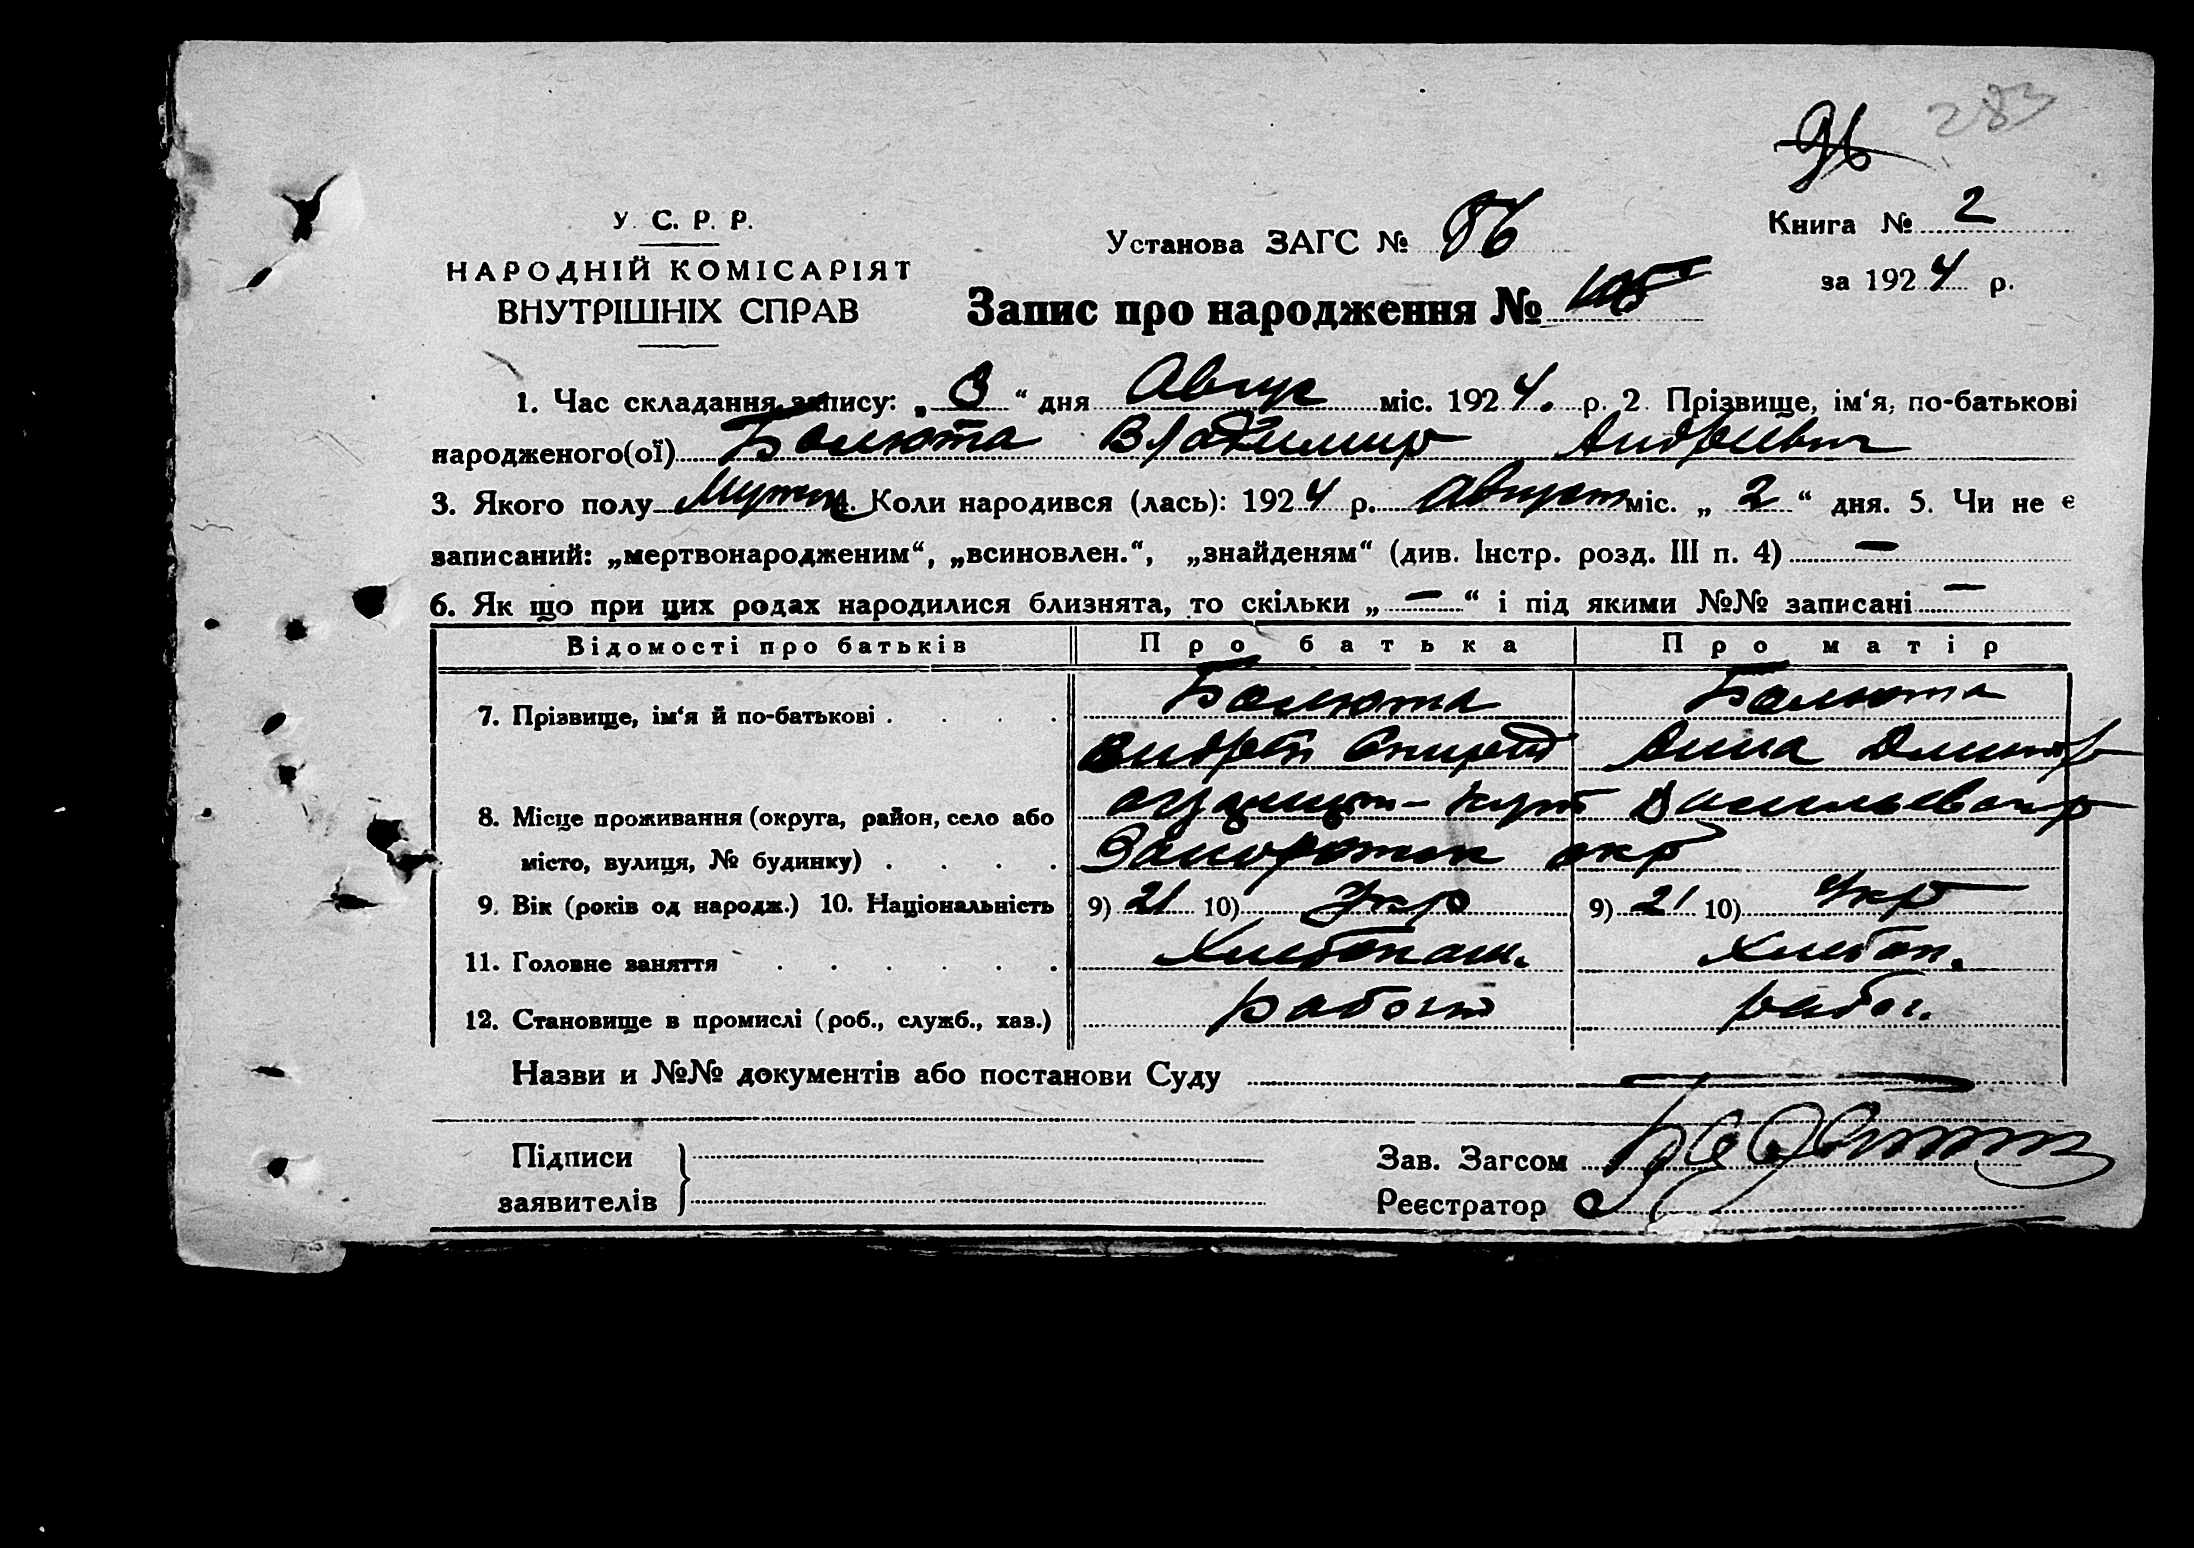 283
96
У. С. Р. Р.
НАРОДНІЙ КОМІСАРІЯТ
ВНУТРІШНІХ СПРАВ
Установа ЗАГС № 86
Книга № 2
за 1924 р.
Запис про народження № 105
1. Час складання запису: „ 3 “ дня Авгус міс. 1924. р. 2. Прізвище, ім‘я, по-батькові
народженого(ої) Болюта Владимир Андреевич
3. Якого полу Мужск 4. Коли народився (лась): 1924 р. Август міс. „ 2 “ дня. 5. Чи не є
записаний: „мертвонародженим“, „всиновлен.“, „знайденям“ (див. Інстр. розд. III п. 4) —
6. Як що при цих родах народилися близнята, то скільки „ — “ і під якими №№ записані —
Відомості про батьків Про батька Про матір
7. Прізвище, ім‘я й по-батькові . . . . Болюта Болюта
Андрей Спирид Анна Дмитр
8. Місце проживання (округа, район, село або
місто, вулиця, № будинку) . . . . Запорожск окр
9. Вік (років од народж.) 10. Національність 9) 21 10) Укр 9) 21 10) Укр
11. Головне заняття . . . . . . Хлебопаш. Хлебоп.
12. Становище в промислі (роб., служб., хаз.) работ работ.
Назви и №№ документів або постанови Суду —
Підписи
заявителів
Зав. Загсом
Реєстратор